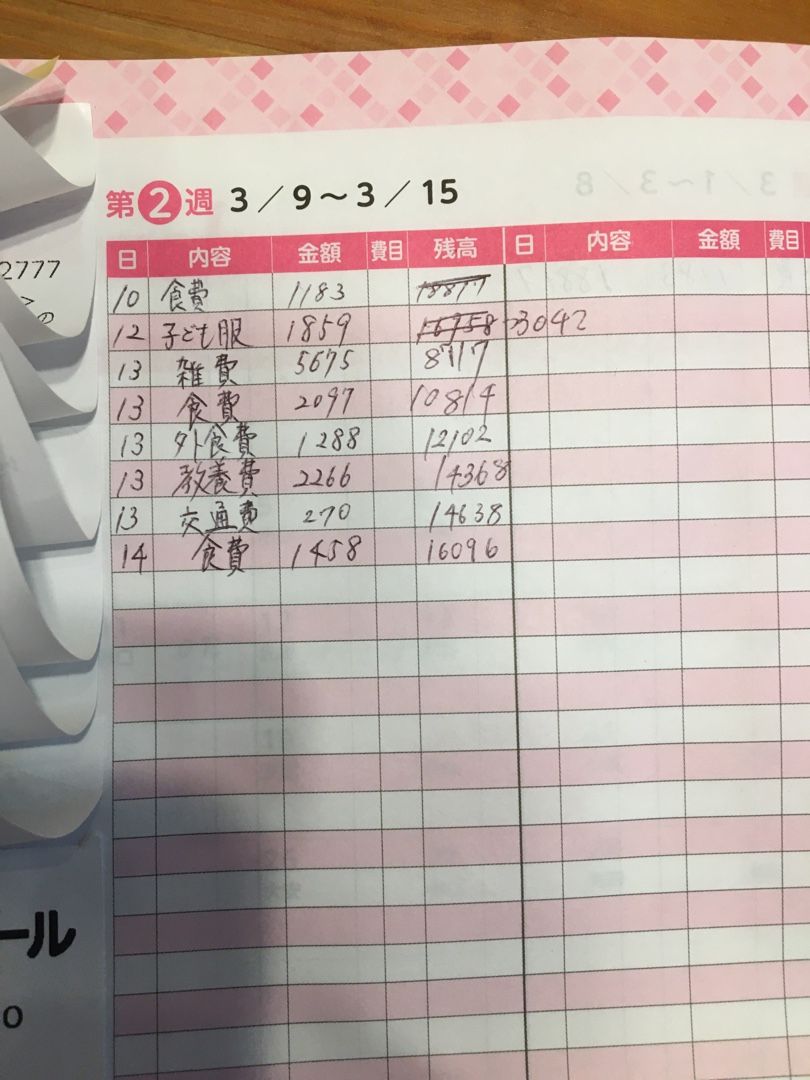 2777
>
の
第2週 3／9～3／15
日 内容 金額 費目 残高 日 内容 金額 費目
10 食費 1183 18817
12 子ども服 1859 16958 3042
13 雑費 5675 8717
13 食費 2097 10814
13 外食費 1288 12102
13 教養費 2266 14368
13 交通費 270 14638
14 食費 1458 16096
ール
0